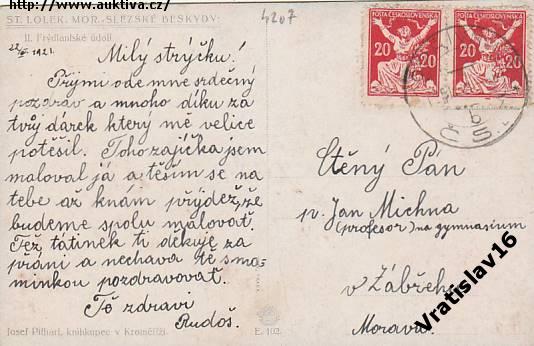 Zdroj: www.auktiva.cz
ST. LOLEK. MOR.-SLEZSKÉ BESKYDY:
II. Frýdlantské údolí.
4207
22/III. 1921.
Milý strýčku!
Přijmi ode mne srdečný
pozdrav a mnoho díku za
tvůj dárek který mě velice
potěšil. Toho zajíčka jsem
maloval já a těším se na
tebe až k nám přijdeš, že
budeme spolu malovat.
Též tatínek ti děkuje za
přání a nechava tě s ma-
minkou pozdravovat.
Tě zdraví
Rudoš.
POŠTA ČESKOSLOVENSKÁ
20 20
POŠTA ČESKOSLOVENSKÁ
20 20
Ctěný Pán
p. Jan Michna
(profesor) na gymnasium
v Zábřeh
Morava
Josef Pithart, knihkupec v Kroměříži.
E. 102.
Vratislav16